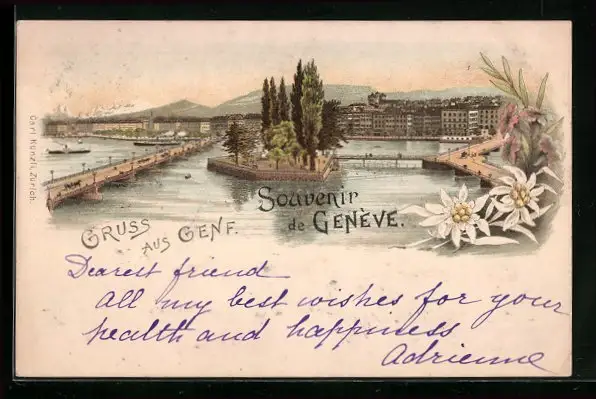 Carl Künzli, Zürich.
Souvenir
de GENÈVE.
GRUSS
AUS GENF.
Dearest friend
all my best wishes for your
health and happiness
Adrienne